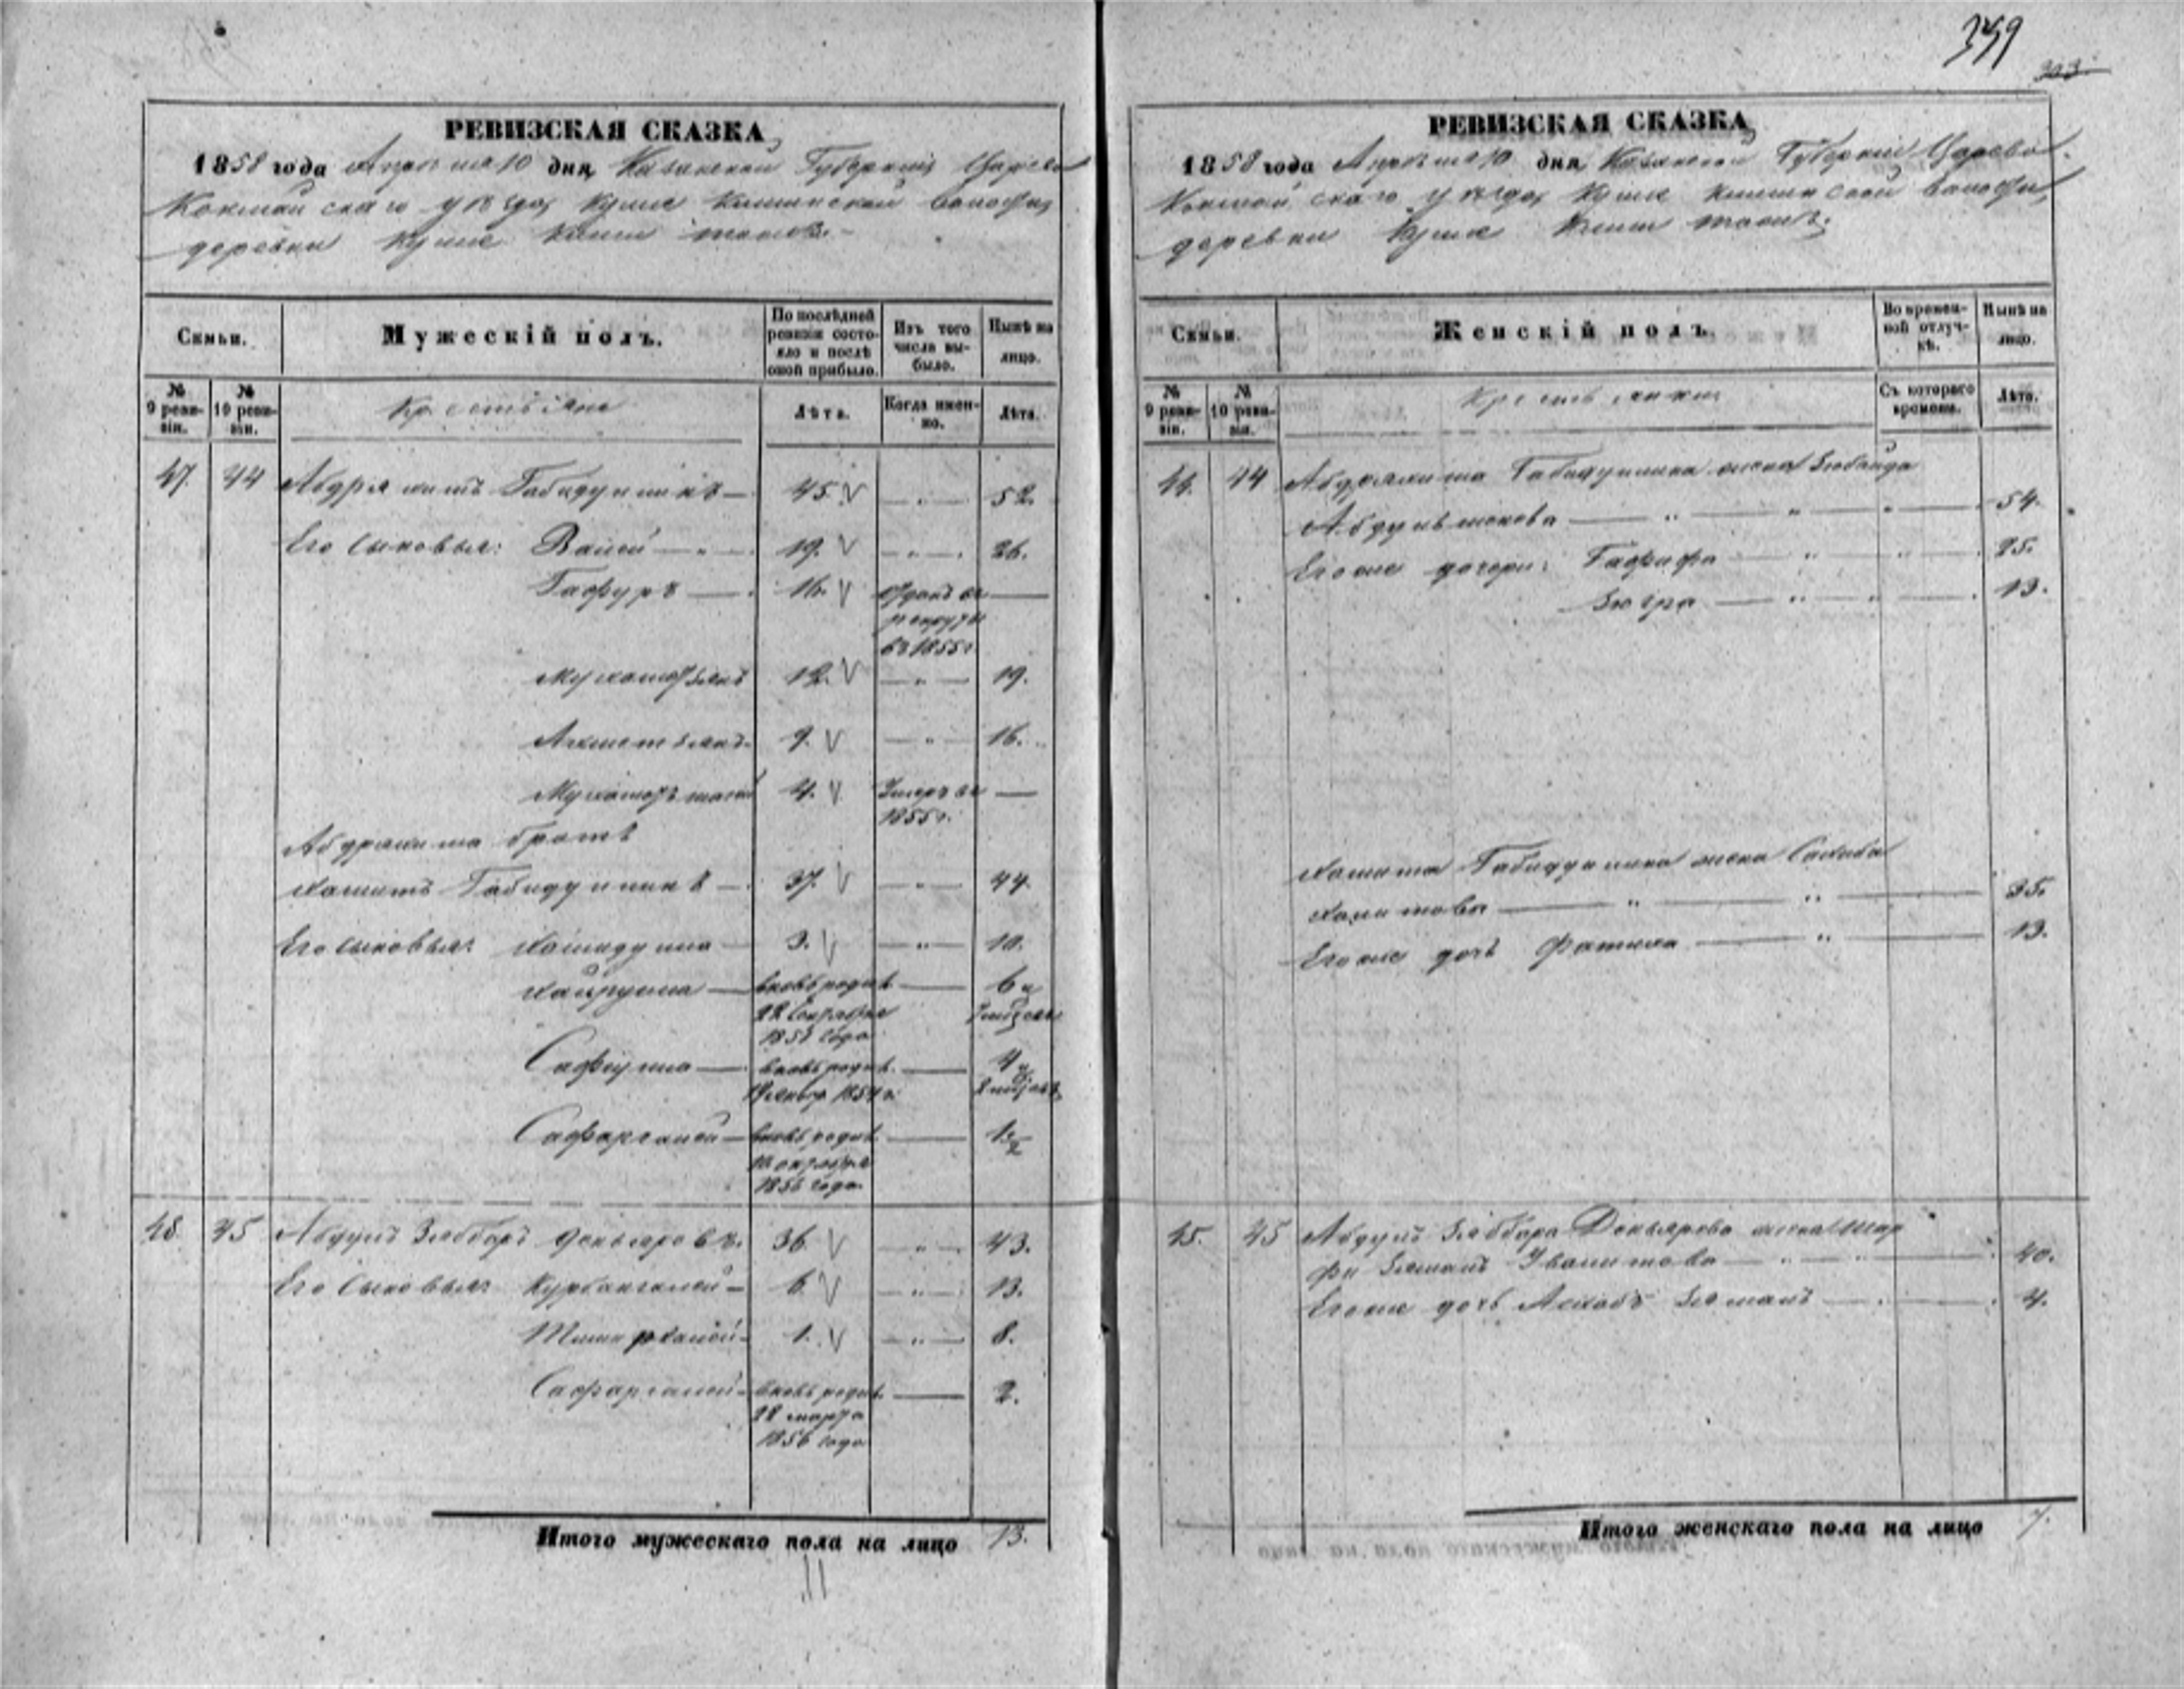 359
303
РЕВИЗСКАЯ СКАЗКА
1858 года Апреля 10 дня Казанской Губерніи Царево
Кокшайскаго уѣзда, Куше Кишинской волости,
деревни Куше
Семьи.
Мужескій полъ.
По послѣдней ревизіи состояло и послѣ оной прибыло.
Изъ того числа выбыло.
Нынѣ на лицо.
№ 9 ревизіи.
№ 10 ревизіи.
Крестьяне
Лѣта.
Когда именно.
Лѣта.
47. 44 Габидуллинъ — 45. — „ — 52.
Его сыновья: Валей — „ — 19. — „ — 26.
Гафуръ — 16. Отданъ въ —
рекруты
въ 1855 г.
Мухаметзянъ 12. — „ — 19.
Ахметзянъ. 9. — „ — 16.
4. Умеръ въ —
1855 г.
братъ
Хамитъ Габидуллинъ — 37. — „ — 44.
Его сыновья: Хамидулла — 3. — „ — 10.
Хайрулла — вновь родил. — 6 и
22 Сентября
года
Сафіулла — вновь родил. — 4 и
1854 г.
Сафаргалей — вновь родил. — 1 ½
октября
1856 года.
48. 45 Абдулъ Зяббаръ Донъяровъ. 36. — „ — 43.
Его сыновья: Курбангалей — 6. — „ — 13.
1. — „ — 8.
Сафаргалей — вновь родил. — 2.
22 марта
1856 года
Итого мужескаго пола на лицо 13.
11
РЕВИЗСКАЯ СКАЗКА
1858 года Апреля 10 дня Казанской Губерніи Царево
Кокшайскаго уѣзда, Куше Кишинской волости,
деревни Куше
Семьи.
Женскій полъ.
Во временной отлучкѣ.
Нынѣ на лицо.
№ 9 ревизіи.
№ 10 ревизіи.
Крестьянки
Съ котораго времени.
Лѣта.
44. 44 Габидуллина жена Зюбайда
— „ — „ — 54.
Его же дочери: Гафифа — „ — „ — 25.
Зюгра — „ — „ — 13.
Хамита Габидуллина жена
Хамитова — „ — „ — 35.
Его же дочь Фатиха — „ — 13.
45. 45 Абдулъ Зяббара Донъярова жена Шар
— „ — „ — 40.
Его же дочь — 4.
Итого женскаго пола на лицо 7.